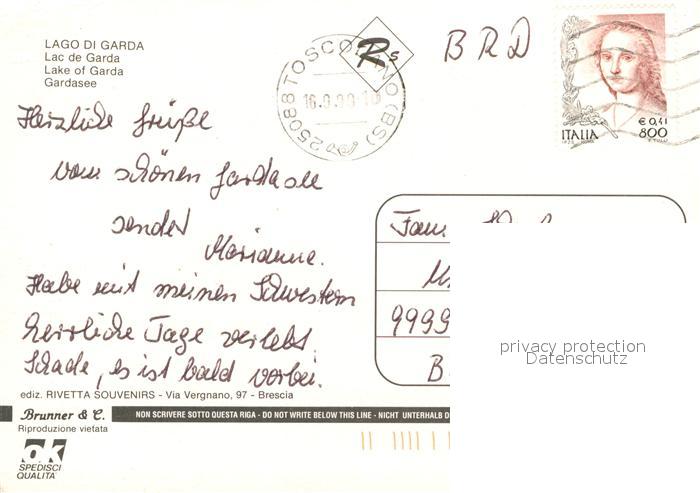 LAGO DI GARDA
Lac de Garda
Lake of Garda
Gardasee
Rs
TOSCOLANO (BS)
25088
16.9.99
BRD
ITALIA
€ 0,41
800
Herzliche Grüße
vom schönen Gardasee
sendet
Marianne.
Habe mit meinen Schwestern
herrliche Tage verlebt.
Schade, es ist bald vorbei.
Fam.
9999
B
privacy protection
Datenschutz
ediz. RIVETTA SOUVENIRS - Via Vergnano, 97 - Brescia
Brunner & C.
NON SCRIVERE SOTTO QUESTA RIGA - DO NOT WRITE BELOW THIS LINE - NICHT UNTERHALB D
Riproduzione vietata
ok
SPEDISCI
QUALITA'